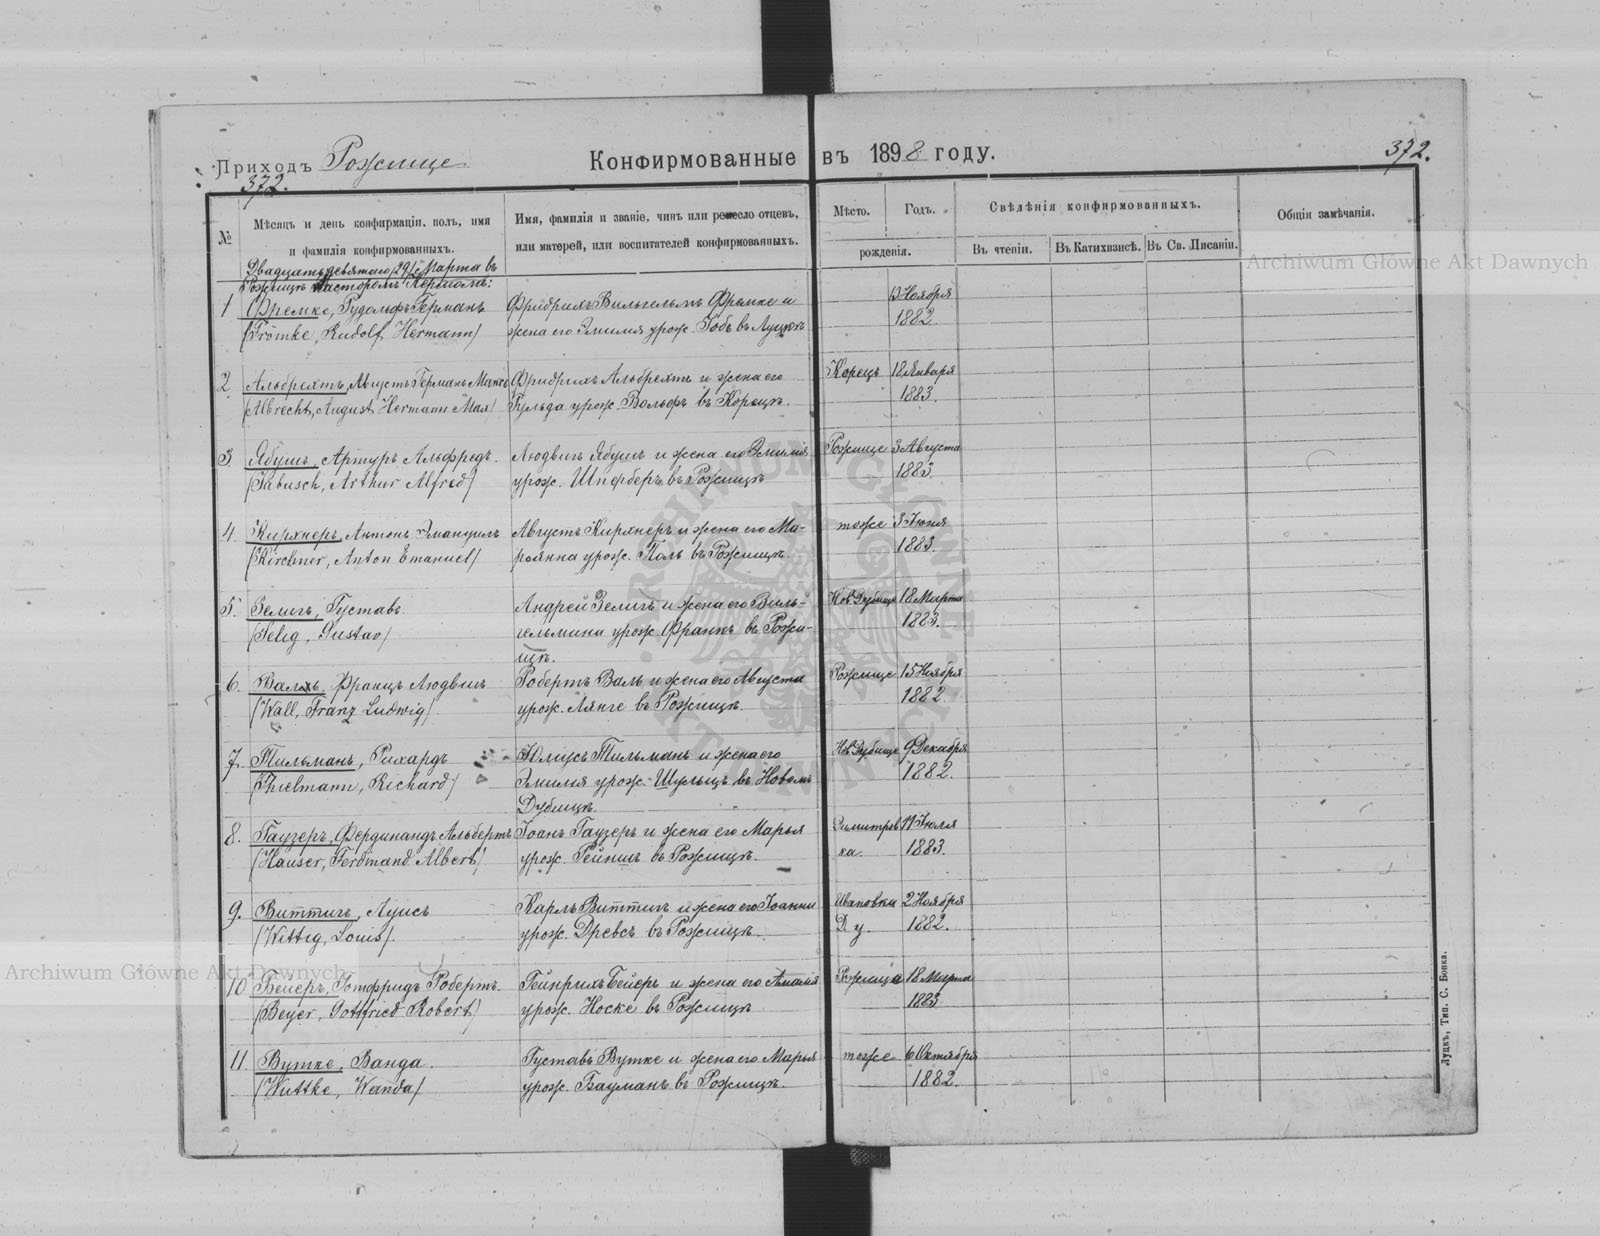 Приходъ Рожище Конфирмованные въ 1898 году. 372.
372.
№ Мѣсяцъ и день конфирмаціи, полъ, имя и фамилія конфирмованныхъ.
Имя, фамилія и званіе, чинъ или ремесло отцевъ, или матерей, или воспитателей конфирмованныхъ.
Мѣсто. Годъ. рожденія.
Свѣдѣнія конфирмованныхъ.
Въ чтеніи. Въ Катихизисѣ. Въ Св. Писаніи.
Общія замѣчанія.
Двадцать девятаго /29/ Марта въ
Рожищѣ Пасторомъ Кермомъ:
1 Фремке, Рудольфъ Германъ Фридрихъ Вильгельмъ Фремке и 13 Ноября
/Frömke, Rudolf Hermann/ жена его Эмилія урож. Гобъ въ Луцкѣ 1882
2 Альбрехтъ, Августъ Германъ Максъ Фридрихъ Альбрехтъ и жена его Корецъ 18 Января
/Albrecht, August Hermann Max/ Гульда урож. Вольфъ въ Корецкѣ. 1883.
3 Ябушъ, Артуръ Альфредъ. Людвигъ Ябушъ и жена его Эмилія Рожище 3 Августа
/Jabusch, Arthur Alfred/ урож. въ Рожищѣ 1883.
4. Кирхнеръ, Антонъ Эмануилъ Августъ Кирхнеръ и жена его Ма- тоже 3 Июня
/Kirchner, Anton Emanuel/ріянна урож. Поль въ Рожищѣ. 1883.
5. Зелигъ, Густавъ. Андрей Зелигъ и жена его Виль- Нов. Дубище 18 Марта
/Selig, Gustav/ гельмина урож. Франкъ въ Рожи- 1883.
щѣ.
6. Валлъ, Францъ Людвигъ Робертъ Валъ и жена его Августа Рожище 15 Ноября
/Wall, Franz Ludwig/ урож. Лянге въ Рожищѣ. 1882
7. Тильманъ, Рихардъ Юлиусъ Тильманъ и жена его Нов. Дубище 9 Декабря
/Thielmann, Richard/ Эмилія урож. Шульцъ въ Новомъ 1882.
Дубищѣ.
8. Гаузеръ, Фердинандъ Альбертъ Іоанъ Гаузеръ и жена его Марья Димитров 11 Июля
/Hauser, Ferdinand Albert/ урож. Рейншъ въ Рожищѣ. ка. 1883.
9. Виттигъ, Луисъ Карлъ Виттигъ и жена его Іоанна Ивановка 2 Ноября
/Wittig, Louis/. урож. Древсъ въ Рожищѣ. 1882.
10 Бейеръ, Готфридъ Робертъ. Гейнрихъ Бейеръ и жена его Амалія Рожище 18 Марта
/Beyer, Gottfried Robert/ урож. Носке въ Рожищѣ 1883
11. Вутке, Ванда. Густавъ Вутке и жена его Марья тоже 6 Октября
/Wuttke, Wanda/ урож. Бауманъ въ Рожищѣ. 1882.
Луцкъ, Тип. С. Бонка.
Archiwum Główne Akt Dawnych
Archiwum Główne Akt Dawnych